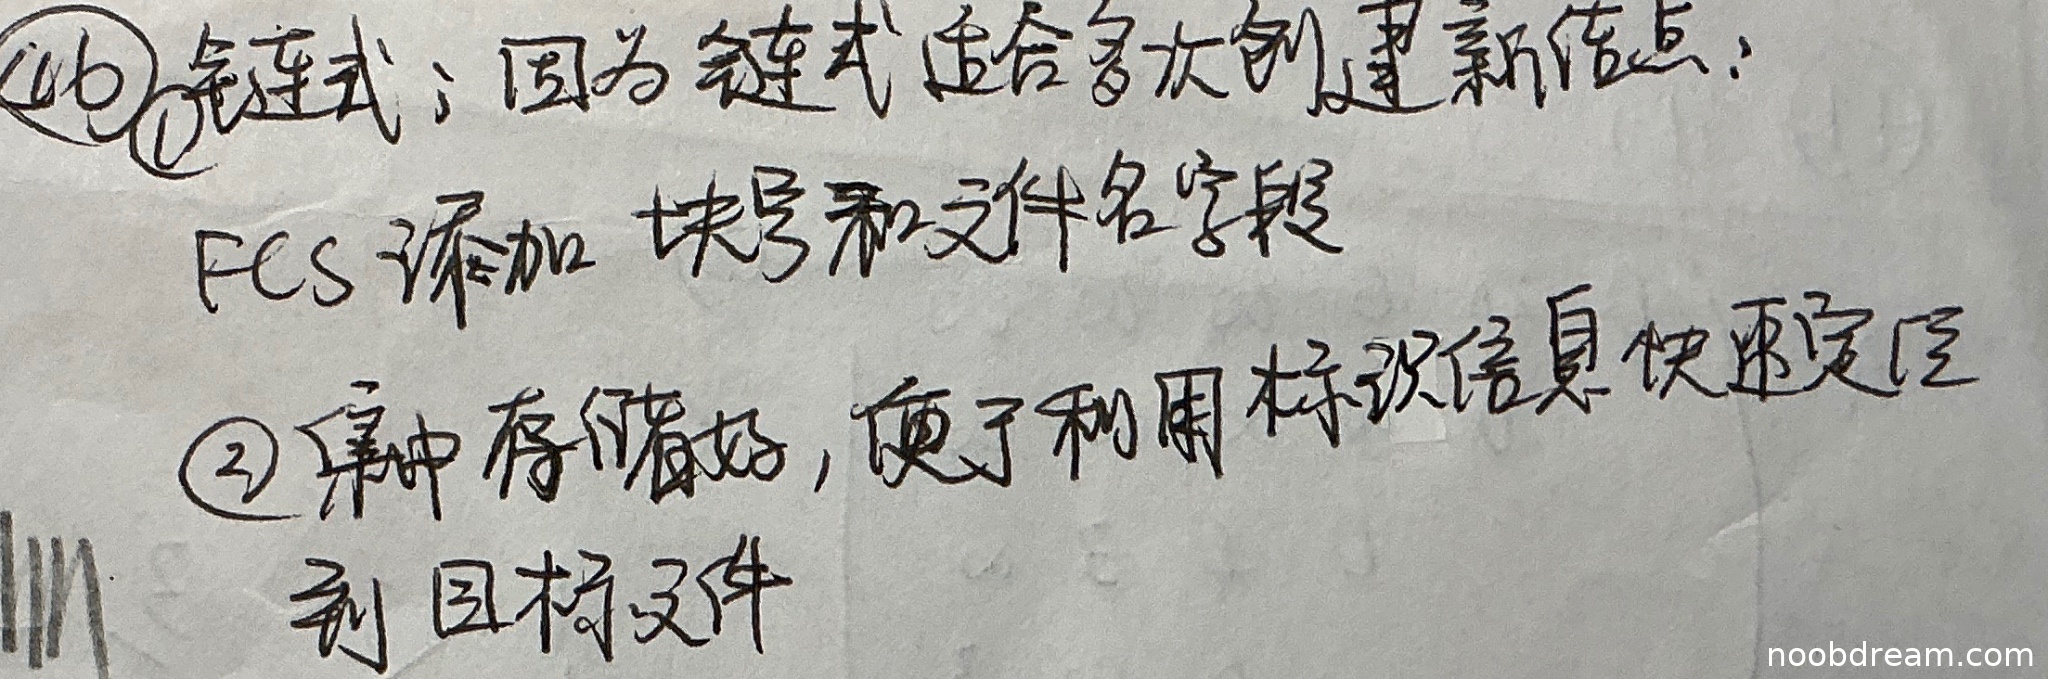 46 ① 链连式；因为链连式适合多次创建新结点；
FCS添加 块号和文件名字段
② 集中存储好，便于利用标识信息快速定位
到目标文件
noobdream.com